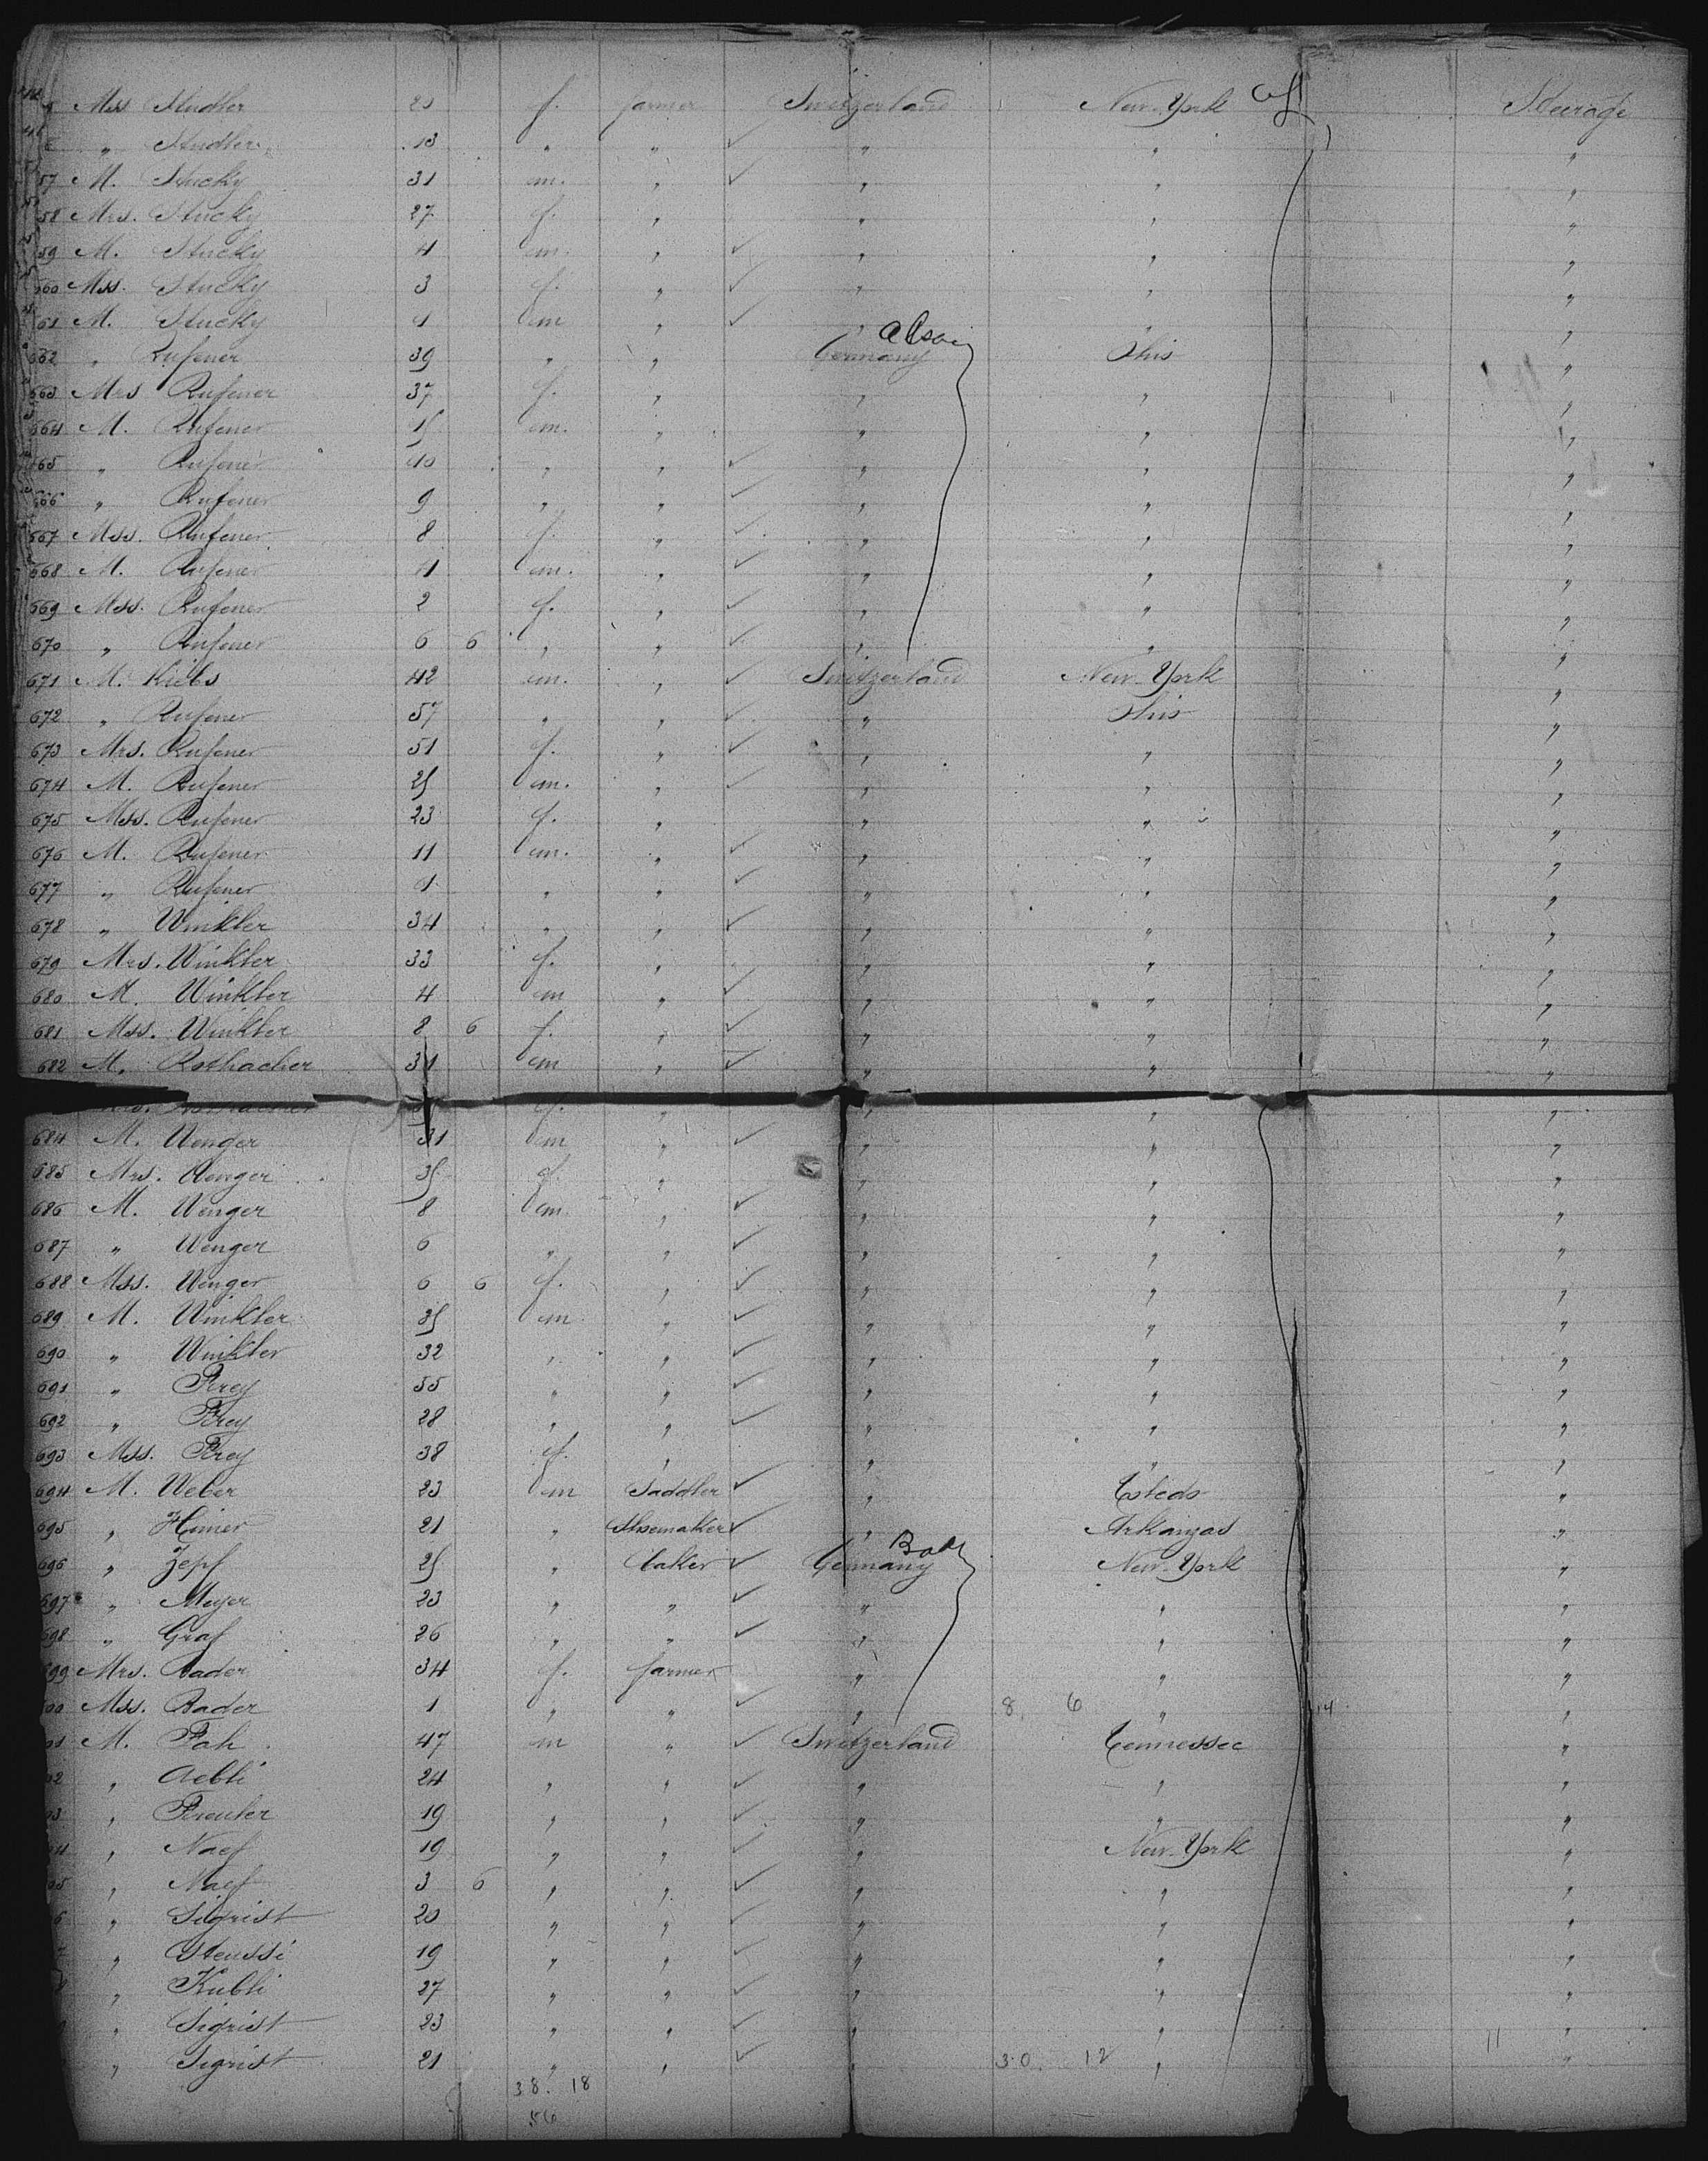 Mss Studler 20 f. farmer Switzerland New-York Steerage
„ Studler 13 „ „ ✓ „ „ „
57 M. Stucky 31 m. „ ✓ „ „ „
58 Mrs. Stucky 27 f. „ „ „ „
59 M. Stucky 4 m. „ ✓ „ „ „
660 Mss. Stucky 3 f. „ ✓ „ „ „
61 M. Stucky 1 m „ ✓ „ „ „
662 „ Rufener 39 „ „ Germany Ohio „
663 Mrs Rufener 37 f. „ „ „ „
664 M. Rufener 15 m. „ „ „ „
665 „ Rufener 10 „ „ ✓ „ „ „
666 „ Rufener 9 „ „ ✓ „ „ „
667 Mss. Rufener 8 f. „ ✓ „ „ „
668 M. Rufener 4 m. „ ✓ „ „ „
669 Mss. Rufener 2 f. „ ✓ „ „ „
670 „ Rufener 6 6 „ „ ✓ „ „ „
671 M. Kiebs 42 m. „ ✓ Switzerland New-York „
672 „ Rufener 57 „ „ ✓ „ Ohio „
673 Mrs. Rufener 51 f. „ ✓ „ „ „
674 M. Rufener 25 m. „ ✓ „ „ „
675 Mss. Rufener 23 f. „ „ „ „
676 M. Rufener 11 m. „ ✓ „ „ „
677 „ Rufener 1 „ „ ✓ „ „ „
678 „ Winkler 34 „ „ ✓ „ „ „
679 Mrs. Winkler 33 f. „ „ „ „
680 M. Winkler 4 m „ ✓ „ „ „
681 Mss. Winkler 8 6 f. „ ✓ „ „ „
682 M. Rothacher 31 m „ ✓ „ „ „
f. „ „ „ „
684 M. Wenger 31 m „ ✓ „ „ „
685 Mrs. Wenger 35 f. „ „ „ „
686 M. Wenger 8 m. „ ✓ „ „ „
687 „ Wenger 6 „ „ ✓ „ „ „
688 Mss. Wenger 6 6 f. „ ✓ „ „ „
689 M. Winkler 35 m „ ✓ „ „ „
690 „ Winkler 32 „ „ ✓ „ „ „
691 „ Frey 55 „ „ ✓ „ „ „
692 „ Frey 28 „ „ ✓ „ „ „
693 Mss. Frey 38 f. „ „ „ „
694 M. Weber 23 m Saddler ✓ „ Toledo „
695 „ Himer 21 „ Shoemaker ✓ „ Arkanzas „
696 „ Zepf 25 „ baker ✓ Germany New-York „
697 „ Meyer 23 „ „ ✓ „ „ „
698 „ Graf 26 „ „ ✓ „ „ „
699 Mrs. Bader 34 f. farmer „ „ „
00 Mss. Bader 1 „ „ ✓ „ 8 6 „ 14 „
01 M. Fah 47 m „ ✓ Switzerland Tennessee „
02 „ Aebli 24 „ „ ✓ „ „ „
03 „ Freuler 19 „ „ ✓ „ „ „
04 „ Naef 19 „ „ ✓ „ New-York „
05 „ Naef 3 6 „ „ ✓ „ „ „
6 „ Sigrist 20 „ „ ✓ „ „ „
7 „ Steussi 19 „ „ ✓ „ „ „
8 „ Kubli 27 „ „ ✓ „ „ „
9 „ Sigrist 23 „ „ ✓ „ „ „
„ Sigrist 21 „ „ ✓ „ 30. 12 „ 11 „
38. 18
56